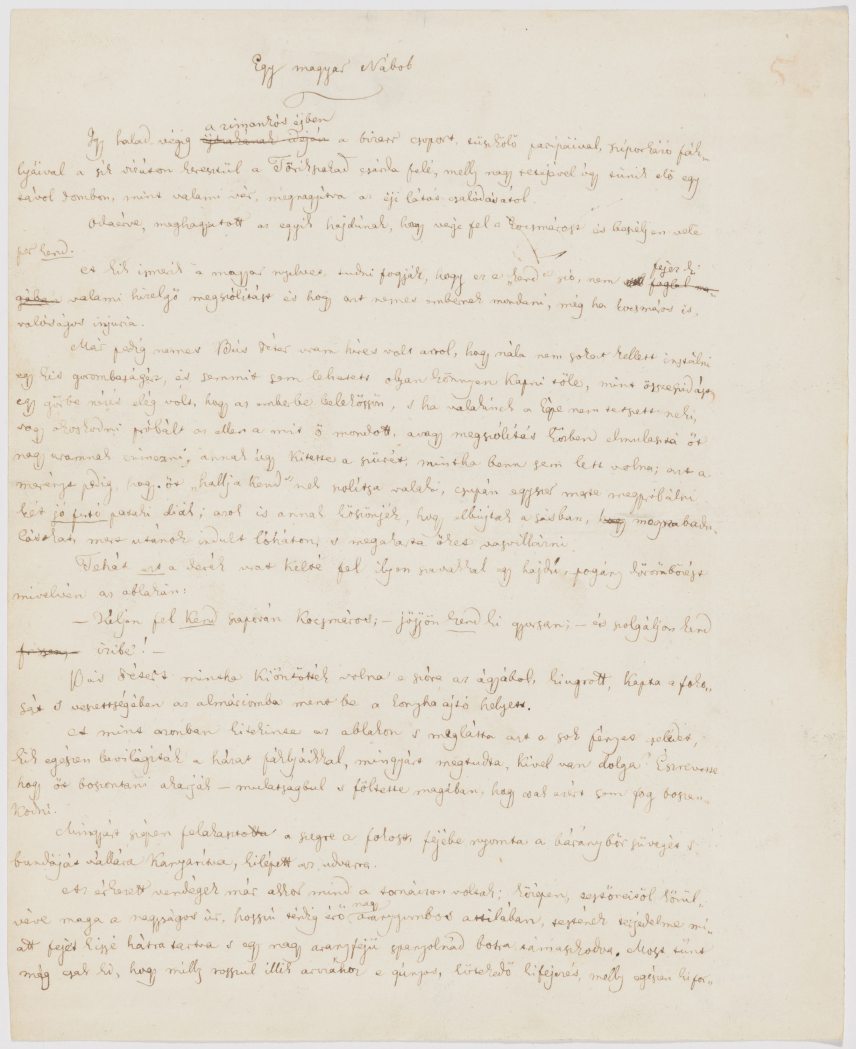 Egy magyar Nábob
a zimankós éjben
Igy halad végig a bizarr csoport, tüszkölő paripáival, sziporkázó fák„
lyáival a sík vidéken keresztül a Törikszakad csárda felé, melly nagy tetejével úgy tünik elő egy
távol dombon, mint valami vár, megnagyitva az éji látás csalódásától.
Odaérve, meghagyatott az egyik hajdúnak, hogy verje fel a kocsmárost és beszéljen vele
per kend.
A kik ismerik a magyar nyelvet, tudni fogják, hogy ez a „kend" szó, nem fejez ki
valami hizelgő megszólitást és hogy azt nemes embernek mondani, még ha kocsmáros is,
valóságos injuria.
Már pedig nemes Bús Péter uram hires volt arról, hogy nála nem sokat kellett instálni
egy kis gorombaságért, és semmit sem lehetett olyan könnyen kapni tőle, mint összeszidást,
egy görbe nézés elég volt, hogy az emberbe belekössön, s ha valakinek a képe nem tetszett neki,
vagy okoskodni próbált az ellen a mit ő mondott, avagy megszólitás közben elmulasztá őt
nagy uramnak czimezni, annak úgy kitette a szürét, mintha benn sem lett volna; azt a
merényt pedig, hogy őt „hallja kend"-nek szólitsa valaki, csupán egyszer merte megpróbálni
két jó futó pataki diák; azok is annak köszönjék, hogy elbújtak a sásban,
mert utánok indult lóháton, s meg akarta őket vasvillázni.
Tehát ezt a derék urat kelté fel ilyen szavakkal egy hajdú, pogány dörömbözést
mivelvén az ablakán:
— Keljen fel kend szaporán kocsmáros; — jöjjön kend ki gyorsan; — és szolgáljon kend
izibe! —
Bús Péter mintha kiöntötték volna e szóra az ágyából, kiugrott, kapta a foko„
sát s veszettségében az almáriomba ment be a konyhaajtó helyett.
A mint azonban kitekinte az ablakon s meglátta azt a sok fényes cselédet,
kik egészen bevilágiták a házat fáklyáikkal, mingyárt megtudta, kivel van dolga? Észrevette
hogy őt boszontani akarják — mulatságbul s föltette magában, hogy csak azért sem fog boszan„
kodni.
Mingyárt szépen felakasztotta a szegre a fokost, fejébe nyomta a báránybőr süvegét s
bundáját vállára kanyaritva, kilépett az udvarra.
Az érkezett vendégek már akkor mind a tornáczon voltak; középen, testőreitől körül„
véve maga a nagyságos úr, hosszú térdig érő nagy aranygombos attilában, testének terjedelme mi„
att fejét kissé hátra tartva s egy nagy aranyfejű spanyolnád botra támaszkodva. Most tünt
még csak ki, hogy milly rosszul illik arczához e gúnyos, kötekedő kifejezés, melly egészen kifor„